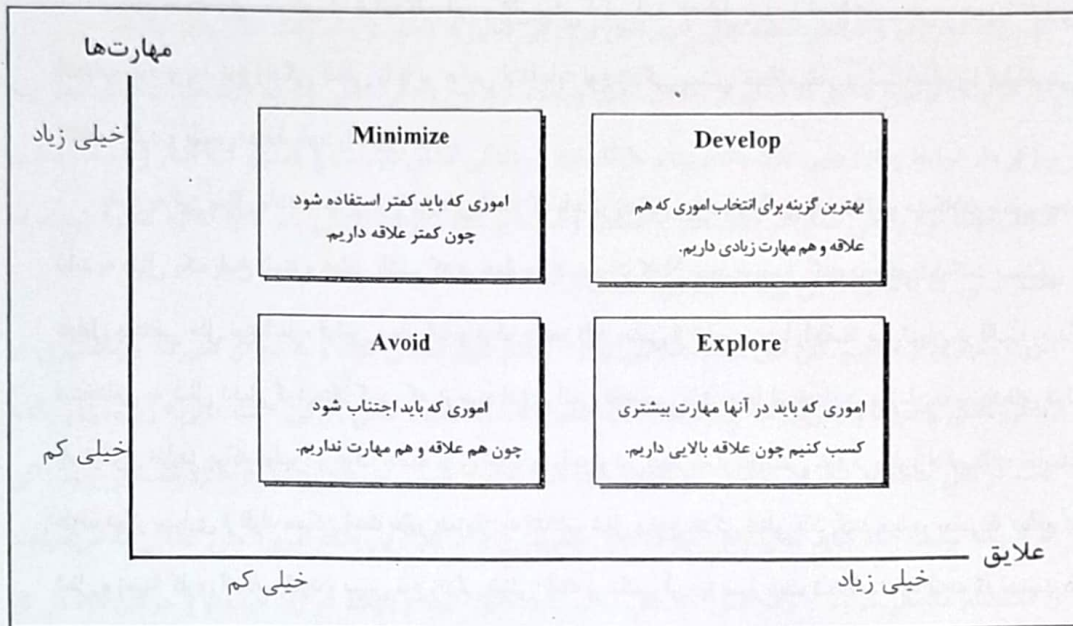 مهارت‌ها
خیلی زیاد
Minimize
اموری که باید کمتر استفاده شود
چون کمتر علاقه داریم.
Develop
بهترین گزینه برای انتخاب اموری که هم
علاقه و هم مهارت زیادی داریم.
Avoid
اموری که باید اجتناب شود
چون هم علاقه و هم مهارت نداریم.
Explore
اموری که باید در آنها مهارت بیشتری
کسب کنیم چون علاقه بالایی داریم.
خیلی کم
علایق
خیلی زیاد
خیلی کم